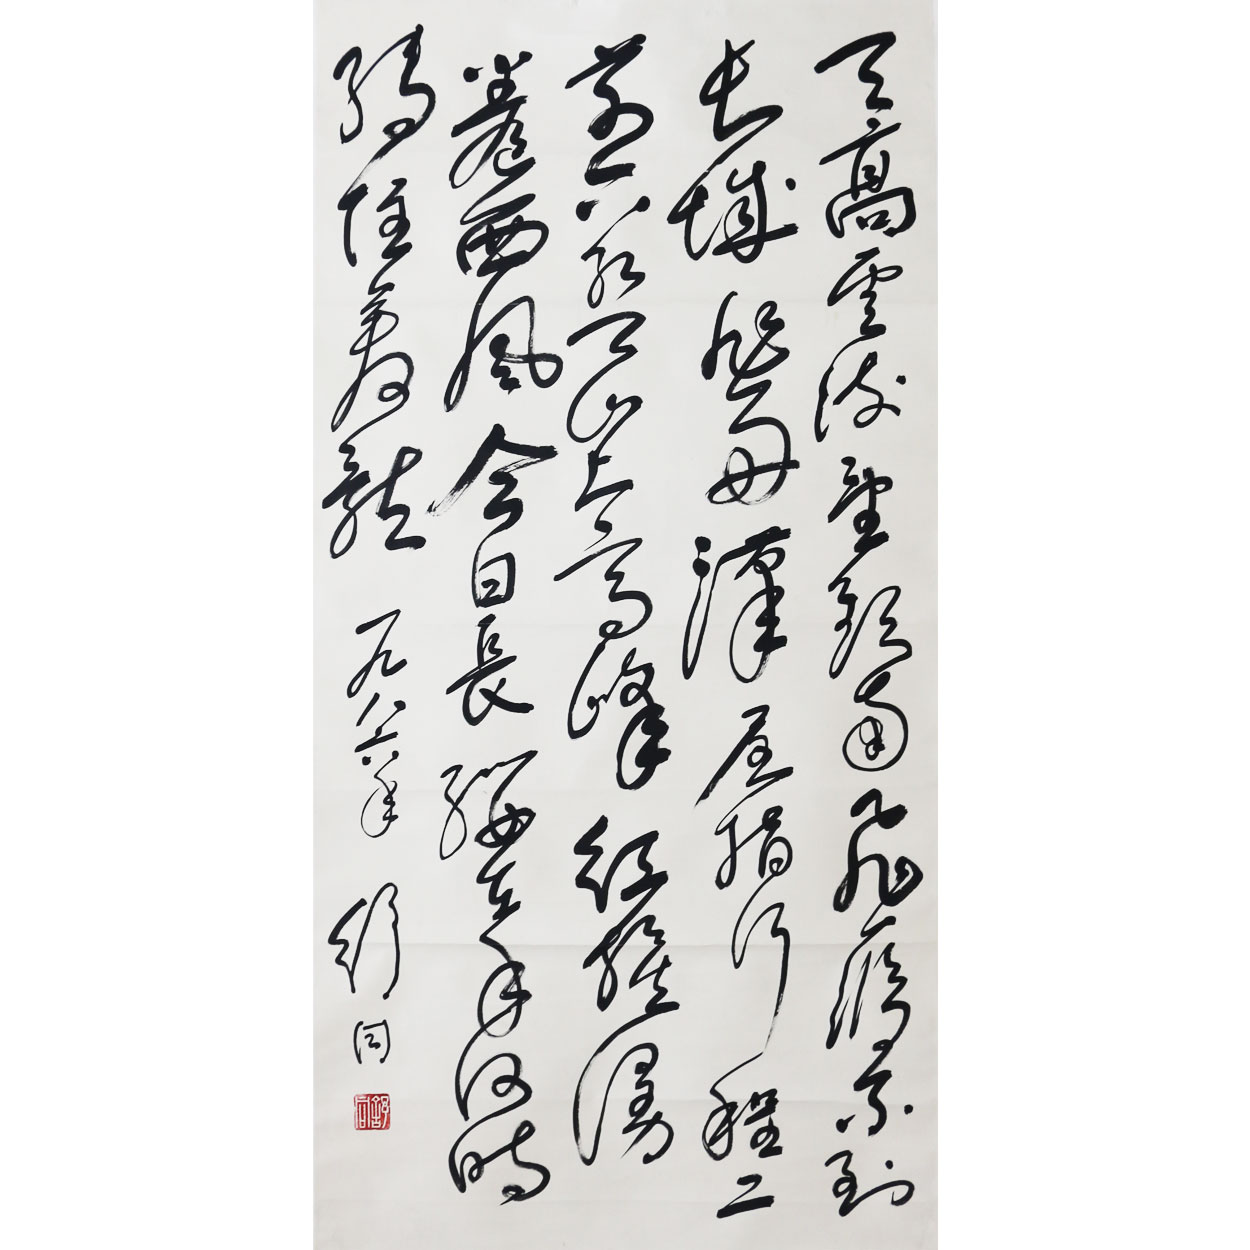 天高雲淡望斷南飛雁不到
长城非好漢屈指行程二
萬六盤山上高峰紅旗漫
卷西風今日長纓在手何時
縛住蒼龍 一九八六年 舒同
舒同